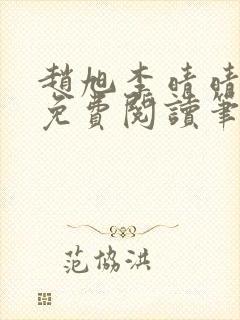 趙旭李晴晴
免費閱讀筆
范協洪